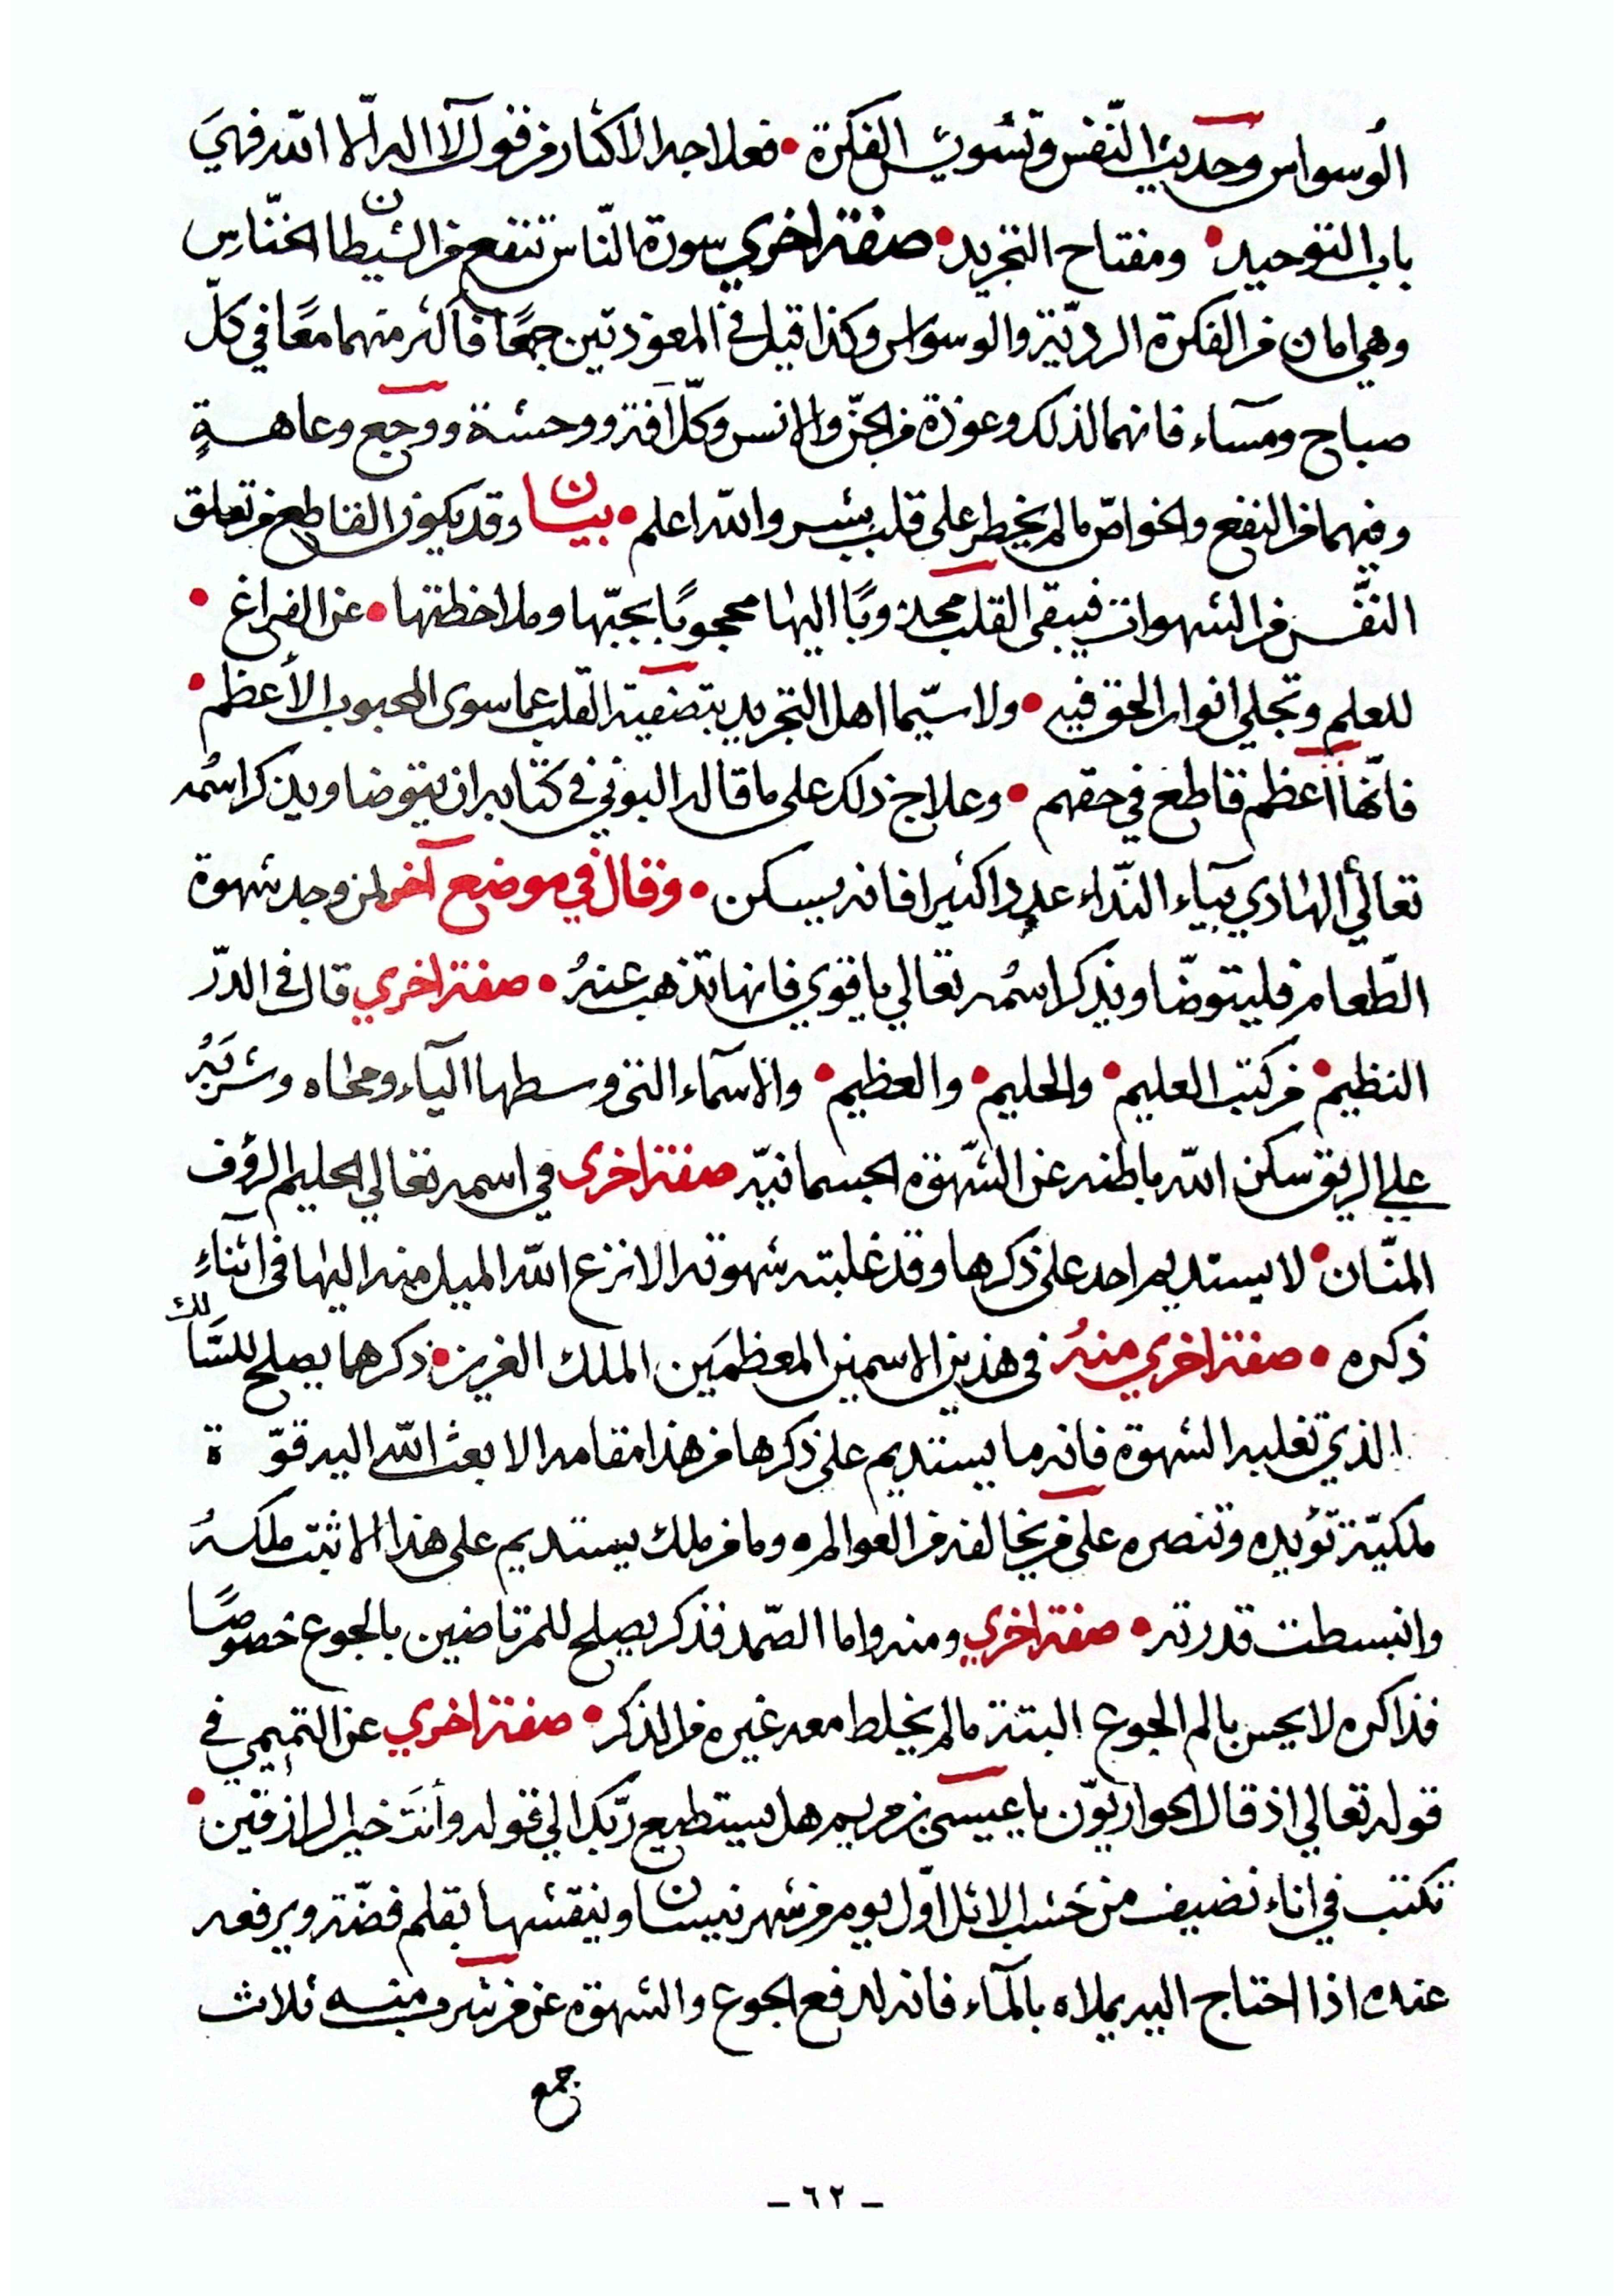 الوسواس وحديث النّفس وتشويش الفكرة • فعلاجه الاكثار من قول لآ اله الّا الله فهيَ
باب التوحيد • ومفتاح التجريد • صفة اخري سورة النّاس تنفع من الشيطان الخنّاسِ
وهي امان من الفكرة الرديّة والوسواس وكذا قيل في المعوذتين جمعًا فاكثر منهما معًا في كلّ
صباح ومسآء فانهما لذلك وعوذة من الجنّ والانس وكلّ آفة ووحشة ووجع وعاهةٍ
وفيهما من النفع والخواصّ ما لم يخطر على قلب بشر والله اعلم • بيان وقد يكون القاطع من تعلق
النّفس من الشهوات فيبقى القلب مجذوبًا اليها محجوبًا بحبّها وملاحظتها • عن الفراغ •
للعلم وتجلي انوار الحق فيه • ولا سيّما اهل التجريد بتصفية القلب عما سوى المحبوب الأعظم •
فانّها اعظم قاطع في حقهم • وعلاج ذلك على ما قاله البوني في كتابه ان يتوضا ويذكر اسمُه
تعالى الهادي بيآء النّداء عددا كثيرا فانه يسكن • وقال في موضع آخر لمن وجد شهوة
الطّعام فليتوضّا ويذكر اسمُه تعالي يا قوي فانها تذهب عنهُ • صفة اخري قال في الدرّ
النظيم • من كتب العليم • والحليم • والعظيم • والاسمآء التي وسطها اليآء ومحاه وشربَهُ
علي الريق سكن الله باطنه عن الشّهوة الجسمانيّه صفة اخرى في اسمه تعالي الحليم الرؤف
المنّان • لا يستديم احد على ذكرها وقد غلبته شهوته الا نزع الله الميل منه اليها في اثنآءِ
ذكره • صفة اخري منهُ في هذين الاسمين المعظمَين الملك العزيز • ذكرهما يصلح للسّالك
الذي تغلبه الشهوة فانه ما يستديم على ذكرها من هذا مقامه الا بعث الله اليه قوّة
ملكيّة تؤيده وتنصره على من يخالفه من العوالم ٥ وما من ملك يستديم على هذا الا ثبت ملكهُ
وانبسطت قدرته • صفة اخري ومنه واما الصّمد فذكر يصلح للمرتاضين بالجوع خصوصًا
فذاكره لا يحس بالم الجوع البتة ما لم يخلط معه غيره من الذكر • صفة اخري عن التميمي في
قوله تعالي اذ قال الحواريّون يا عيسى بن مريم هل يستطيع ربّك الي قوله وأنتَ خير الرازقين •
تكتب في اناء نضيف من خشب الاثل اوّل يوم من شهر نيسان وينقشها بقلم فضّة ويرفعه
عنده اذا احتاج اليه يملاه بالمآء فانه لدفع الجوع والشهوة عن من شرب منه ثلاث
جمع
- ٦٢ -